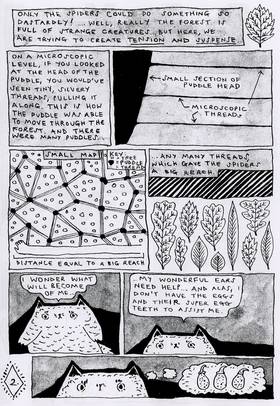 ONLY THE SPIDERS COULD DO SOMETHING SO
DASTARDLY! ...WELL, REALLY THE FOREST IS
FULL OF STRANGE CREATURES. BUT HERE, WE
ARE TRYING TO CREATE TENSION AND SUSPENSE.
ON A MICROSCOPIC
LEVEL, IF YOU LOOKED
AT THE HEAD OF THE
PUDDLE, YOU WOULD'VE
SEEN TINY, SILVERY
THREADS, PULLING IT
ALONG. THIS IS HOW
THE PUDDLE WAS ABLE
TO MOVE THROUGH THE
FOREST. AND THERE
WERE MANY PUDDLES..
SMALL SECTION OF
PUDDLE HEAD
MICROSCOPIC
THREADS
SMALL MAP
KEY
PUDDLE
DISTANCE EQUAL TO A BIG REACH
...ANY MANY THREADS,
WHICH GAVE THE SPIDERS
A BIG REACH.
I WONDER WHAT
WILL BECOME
OF ME..
..MY WONDERFUL EARS
NEED HELP... AND ALAS,
DON'T HAVE THE EGGS
AND THEIR SUPER EGG
TEETH TO ASSIST ME.
2